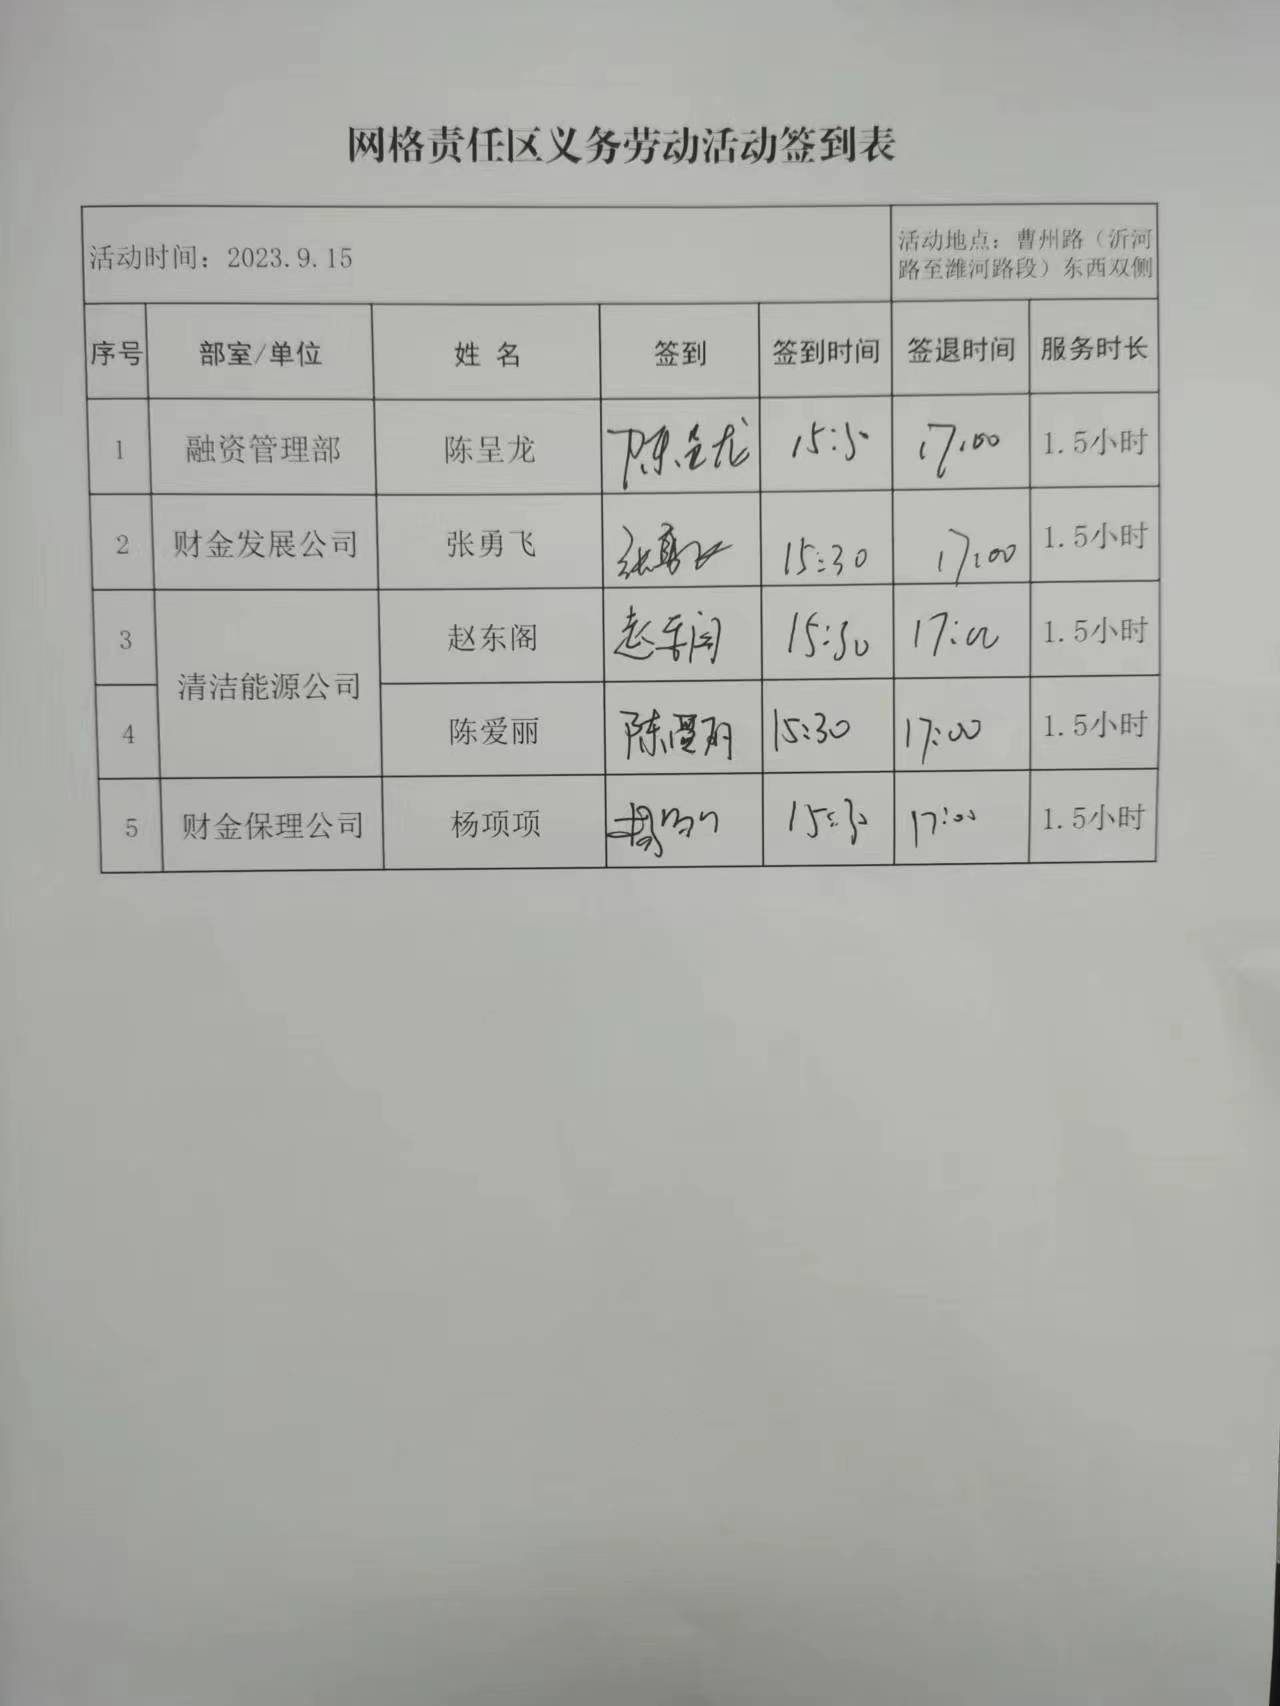 网格责任区义务劳动活动签到表
活动时间：2023.9.15
活动地点：曹州路（沂河
路至潍河路段）东西双侧
序号 部室/单位 姓 名 签到 签到时间 签退时间 服务时长
1 融资管理部 陈呈龙 陈呈龙 15:30 17:00 1.5小时
2 财金发展公司 张勇飞 张勇飞 15:30 17:00 1.5小时
3 清洁能源公司 赵东阁 赵东阁 15:30 17:00 1.5小时
4 陈爱丽 陈爱丽 15:30 17:00 1.5小时
5 财金保理公司 杨项项 杨项项 15:30 17:00 1.5小时